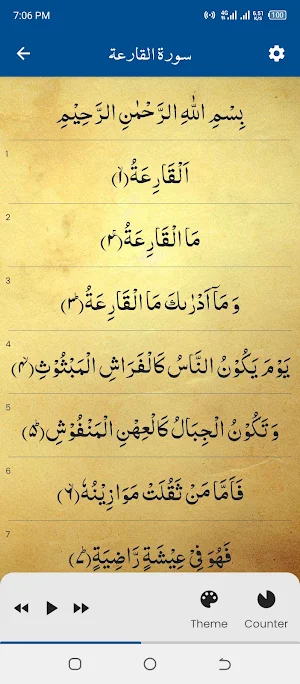 7:06 PM 4G 5.51 K/s 100
سورة القارعة
بِسْمِ اللهِ الرَّحْمٰنِ الرَّحِيْمِ
1
اَلْقَارِعَةُ(۱)
2
مَا الْقَارِعَةُ(۲)
3
وَ مَاۤ اَدْرٰىكَ مَا الْقَارِعَةُ(۳)
4
یَوْمَ یَكُوْنُ النَّاسُ كَالْفَرَاشِ الْمَبْثُوْثِ(۴)
5
وَ تَكُوْنُ الْجِبَالُ كَالْعِهْنِ الْمَنْفُوْشِ(۵)
6
فَاَمَّا مَنْ ثَقُلَتْ مَوَازِیْنُهٗ(۶)
7
فَهُوَ فِیْ عِیْشَةٍ رَّاضِیَةٍ(۷)
Theme Counter